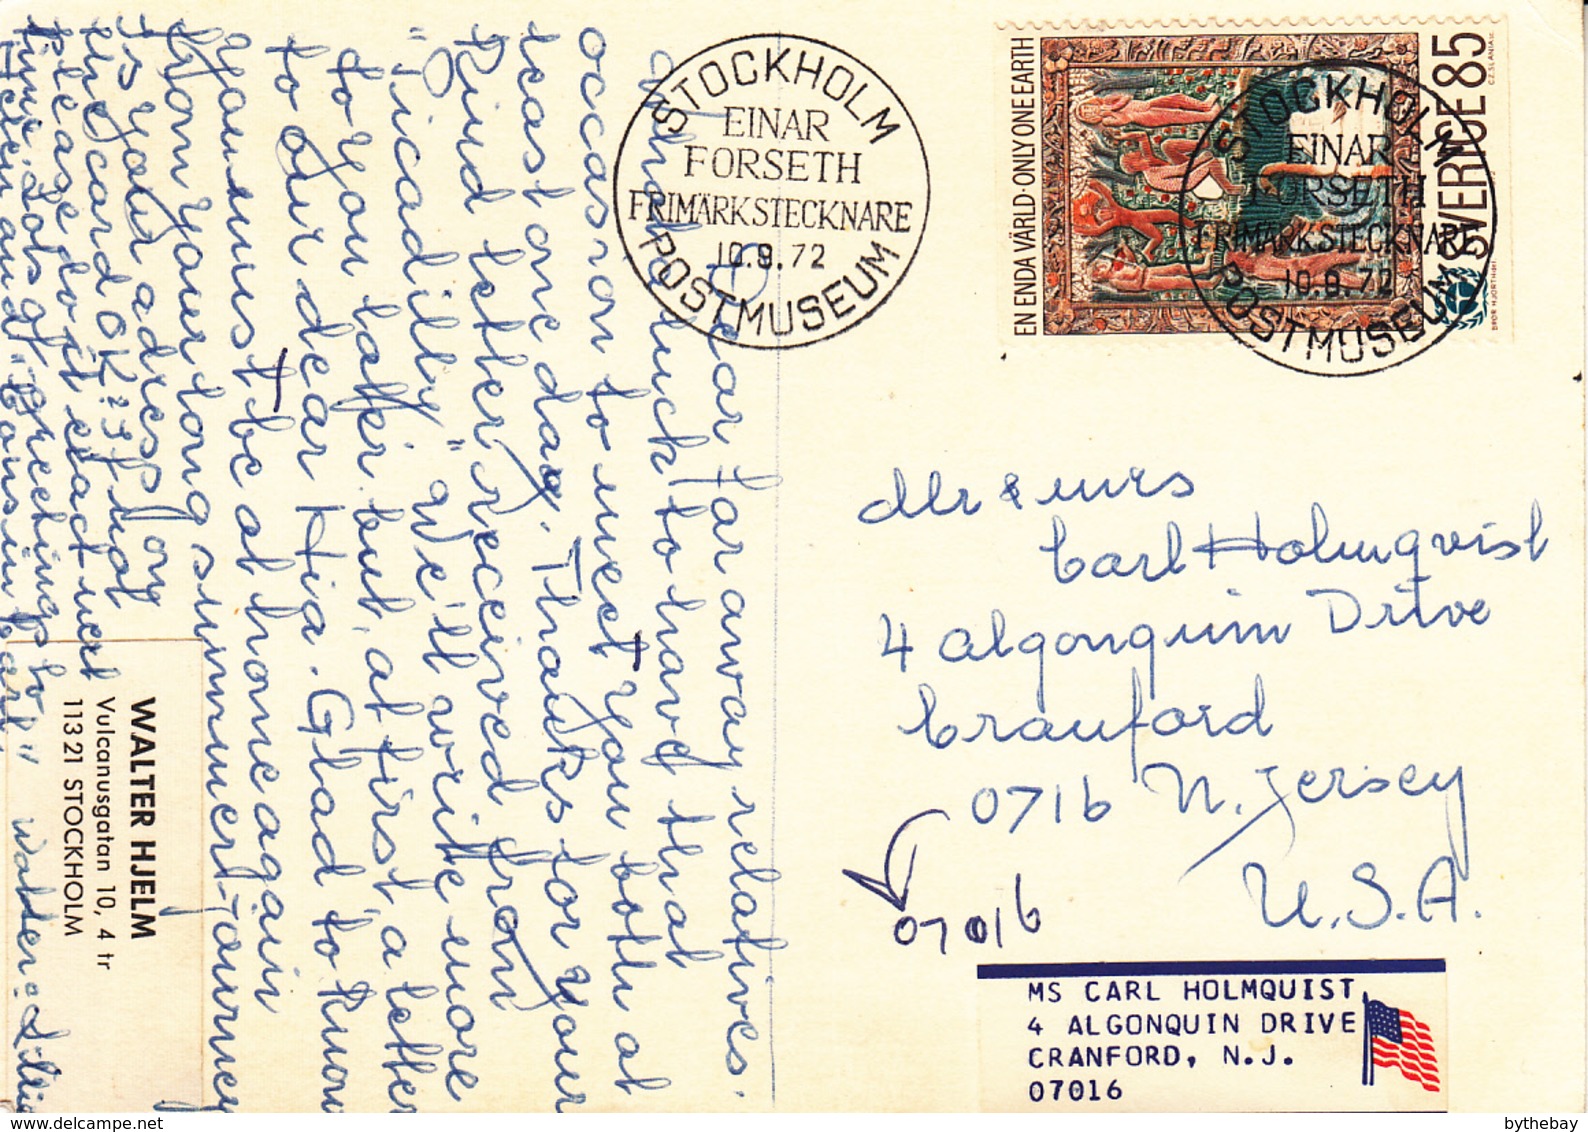 Dear far away relatives.
what a luck to have that
occassion to meet you both at
least one day. Thanks for your
kind letter received from
"Picadilly" We'll write more
to you later but, at first, a letter
to our dear Hia. Glad to know
you must be at home again
from your long summer-journey
Is your adress on
the card OK? If not
please do it exact next
time. Lots of greetings to
Helen and "Cousin Carl"
Walter & Lilli
WALTER HJELM
Vulcanusgatan 10, 4 tr
113 21 STOCKHOLM
STOCKHOLM
EINAR
FORSETH
FRIMÄRKSTECKNARE
10.9.72
POSTMUSEUM
EN ENDA VÄRLD·ONLY ONE EARTH
SVERIGE 85
CZ.SLANIA sc.
BROR HJORTH del.
STOCKHOLM
EINAR
FORSETH
FRIMÄRKSTECKNARE
10.9.72
POSTMUSEUM
Mr & mrs
Carl Holmqvist
4 Algonquin Drive
Cranford
0716 N. Jersey
07016
U.S.A.
MS CARL HOLMQUIST
4 ALGONQUIN DRIVE
CRANFORD, N.J.
07016
bythebay